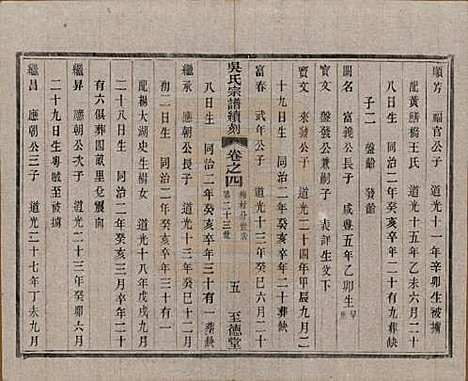 順芳 福官公子 道光十一年辛卯生被擄
配黃膳橋王氏 道光十五年乙未六月二十
八日生 同治二年癸亥卒年二十有九葬缺
子二 盤齡 發齡
關名 富義公長子 咸豐五年乙卯生
寶文 盤發公兼嗣子 表詳生父下
寶文 來發公子 道光二十四年甲辰九月二
十九日生 同治二年癸亥卒年二十葬缺
富春 武年公子 道光十三年癸巳六月二十
八日生 同治二年癸亥卒年三十有一葬缺
吳氏宗譜續刻
卷之四
第二十三世
五 至德堂
繼承 應朝公長子 道光十三年癸巳八月
初一日生 同治二年癸亥卒年三十有一
配楊大湖史生樹女 道光十八年戊戌九月
二十八日生 同治二年癸亥三月卒年二十
有六俱葬圖蔽里兌震向
繼昇 應朝公次子 道光二十三年癸卯六月
二十九日生粵賊至被擄
繼昌 應朝公三子 道光二十七年丁未九月